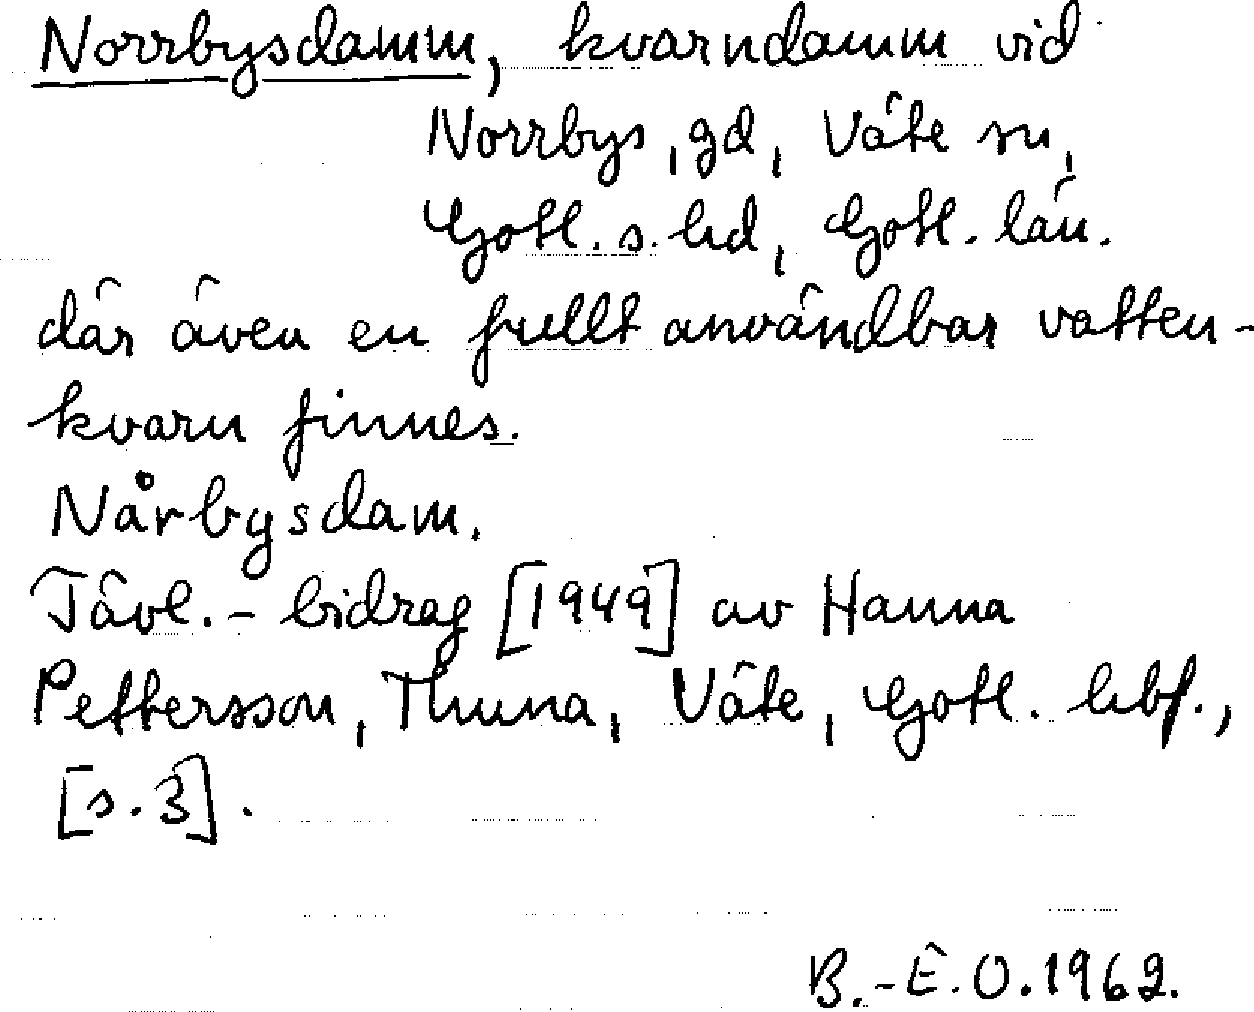 Norrbysdamm, kvarndamm vid
Norrbys, gd, Väte sn,
Gotl. s. hd, Gotl. län.
där även en fullt användbar vatten-
kvarn finnes.
Nårbysdam.
Tävl. - bidrag [1949] av Hanna
Pettersson, Thuna, Väte, Gotl. hbf.,
[s. 3].
B.-E. O. 1962.